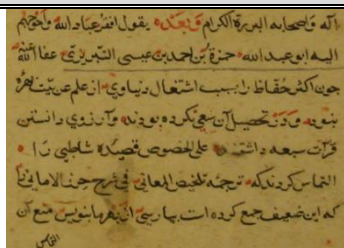 آله واصحابه البررة الكرام وبعده يقول افقر عباد الله واحوجهم
اليه ابو عبد الله حمزة بن احمد بن عيسى التبريزي عفا الله
چون اكثر حفاظ را بسبب اشتغال دنياوى از علم عربيت بهره
نبود ودر تحصيل آن سعى نكرده بودند وآرزوى دانستن
قرآت سبعه داشتند على الخصوص قصيده شاطبى را
التماس كردند كه ترجمه تلخيص المعانى فى شرح حرز الامانى را
كه اين ضعيف جمع كرده است بپارسى از بهر ما بنويس منع آن
التماس